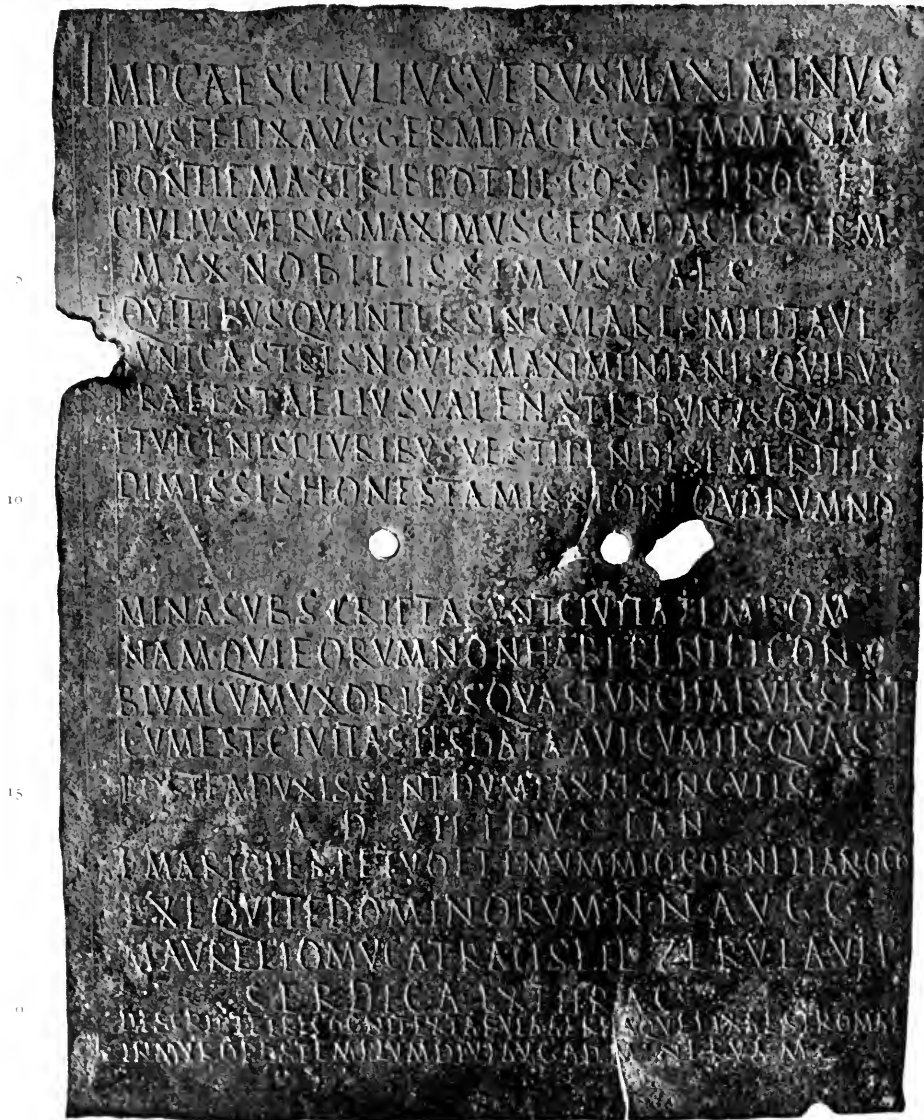 IMP CAES C IVLIVS VERVS MAXIMINVS
PIVS FELIX AVG GERM DACICSARM MAXIM
PONTIF MAX TRIB POT III COS P P PROC ET
C IVLIVS VERVS MAXIMVS GERM DACICSARM
5 MAX NOBILISSIMVS CAES
EQVITIBVS QVI INTER SINGVLARES MILITAVE
RVNT CASTRIS NOVIS MAXIMINIANIS QVIBVS
PRAEEST AELIVS VALENS TRIBVNVS QVINIS
ET VICENIS PLVRIBVSVE STIPENDIS EMERITIS
10 DIMISSIS HONESTA MISSIONE QVORVM NO
MINA SVBSCRIPTA SVNT CIVITATEM ROM
NAM QVI EORVM NON HABERENT ET CONV
BIVM CVM VXORIBVS QVAS TVNC HABVISSENT
CVM EST CIVITAS IIS DATA AVT CVM IIS QVAS
15 POSTEA DVXISSENT DVMTAXAT SINGVLIS
A D VII IDVS IAN
MARIO PERPETVO ET L MVMMIO CORNELIANO CO
EX EQVITE DOMINORVM N N AVGG
M AVRELIO MVCATRALIS FIL
SERDICA EX THRAC
DESCRIPT ET RECOGNIT EX TABVLA AEREA QVE FIXA EST ROMAE
IN MVRO POST TEMPLVM DIVI AVG AD MINERVAM